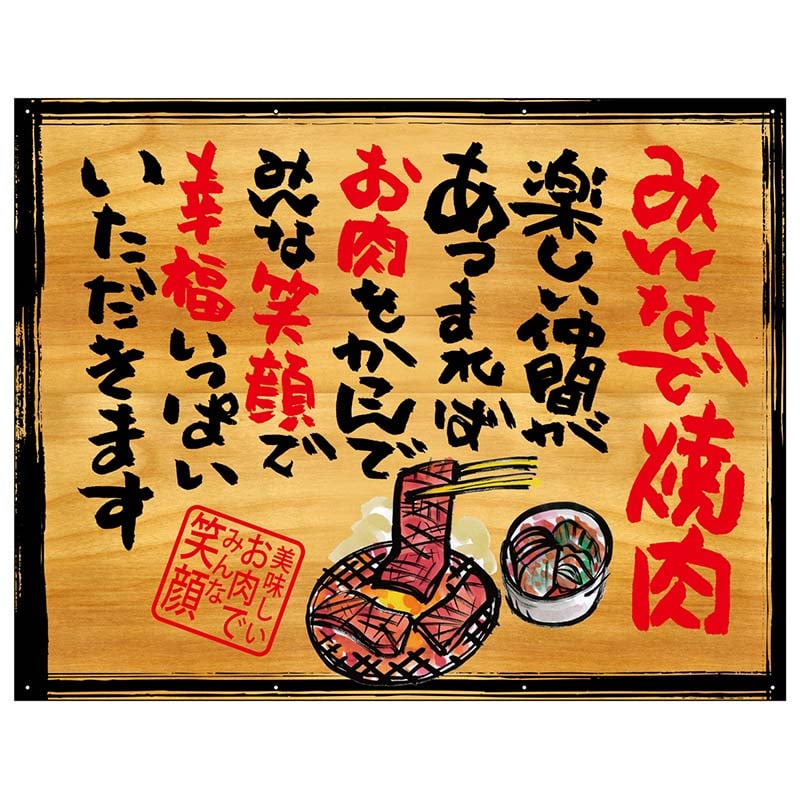 みんなで焼肉
楽しい仲間が
あつまれば
お肉をかこんで
みんな笑顔で
幸福いっぱい
いただきます
美味しい
お肉で
みんな
笑顔